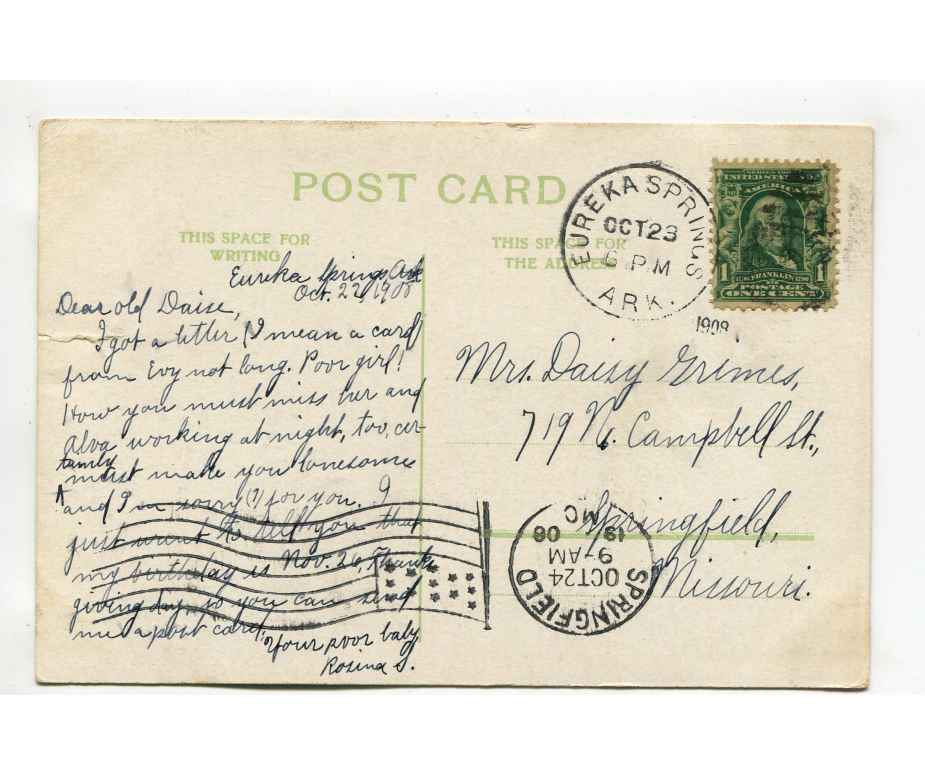 POST CARD
THIS SPACE FOR
WRITING
THIS SPACE FOR
THE ADDRESS
EUREKA SPRINGS
OCT 23
6 PM
ARK.
1908
SERIES 1902
UNITED STATES OF
AMERICA
1 1
FRANKLIN
POSTAGE
ONE CENT
Eureka Springs Ark
Oct. 22, 1908
Dear old Daise,
I got a letter (I mean a card
from Evy not long. Poor girl!
How you must miss her and
Alva working at night, too, cer-
tainly
must make you lonesome
and I'm sorry (?) for you. I
just want to tell you that
my birthday is Nov. 26, Thanks
giving day, so you can send
me a post card.
Your poor baby
Rosina S.
Mrs. Daisy Grimes,
719 N. Campbell St.,
Springfield,
Missouri.
SPRINGFIELD
OCT 24
9 AM
19 08
MO